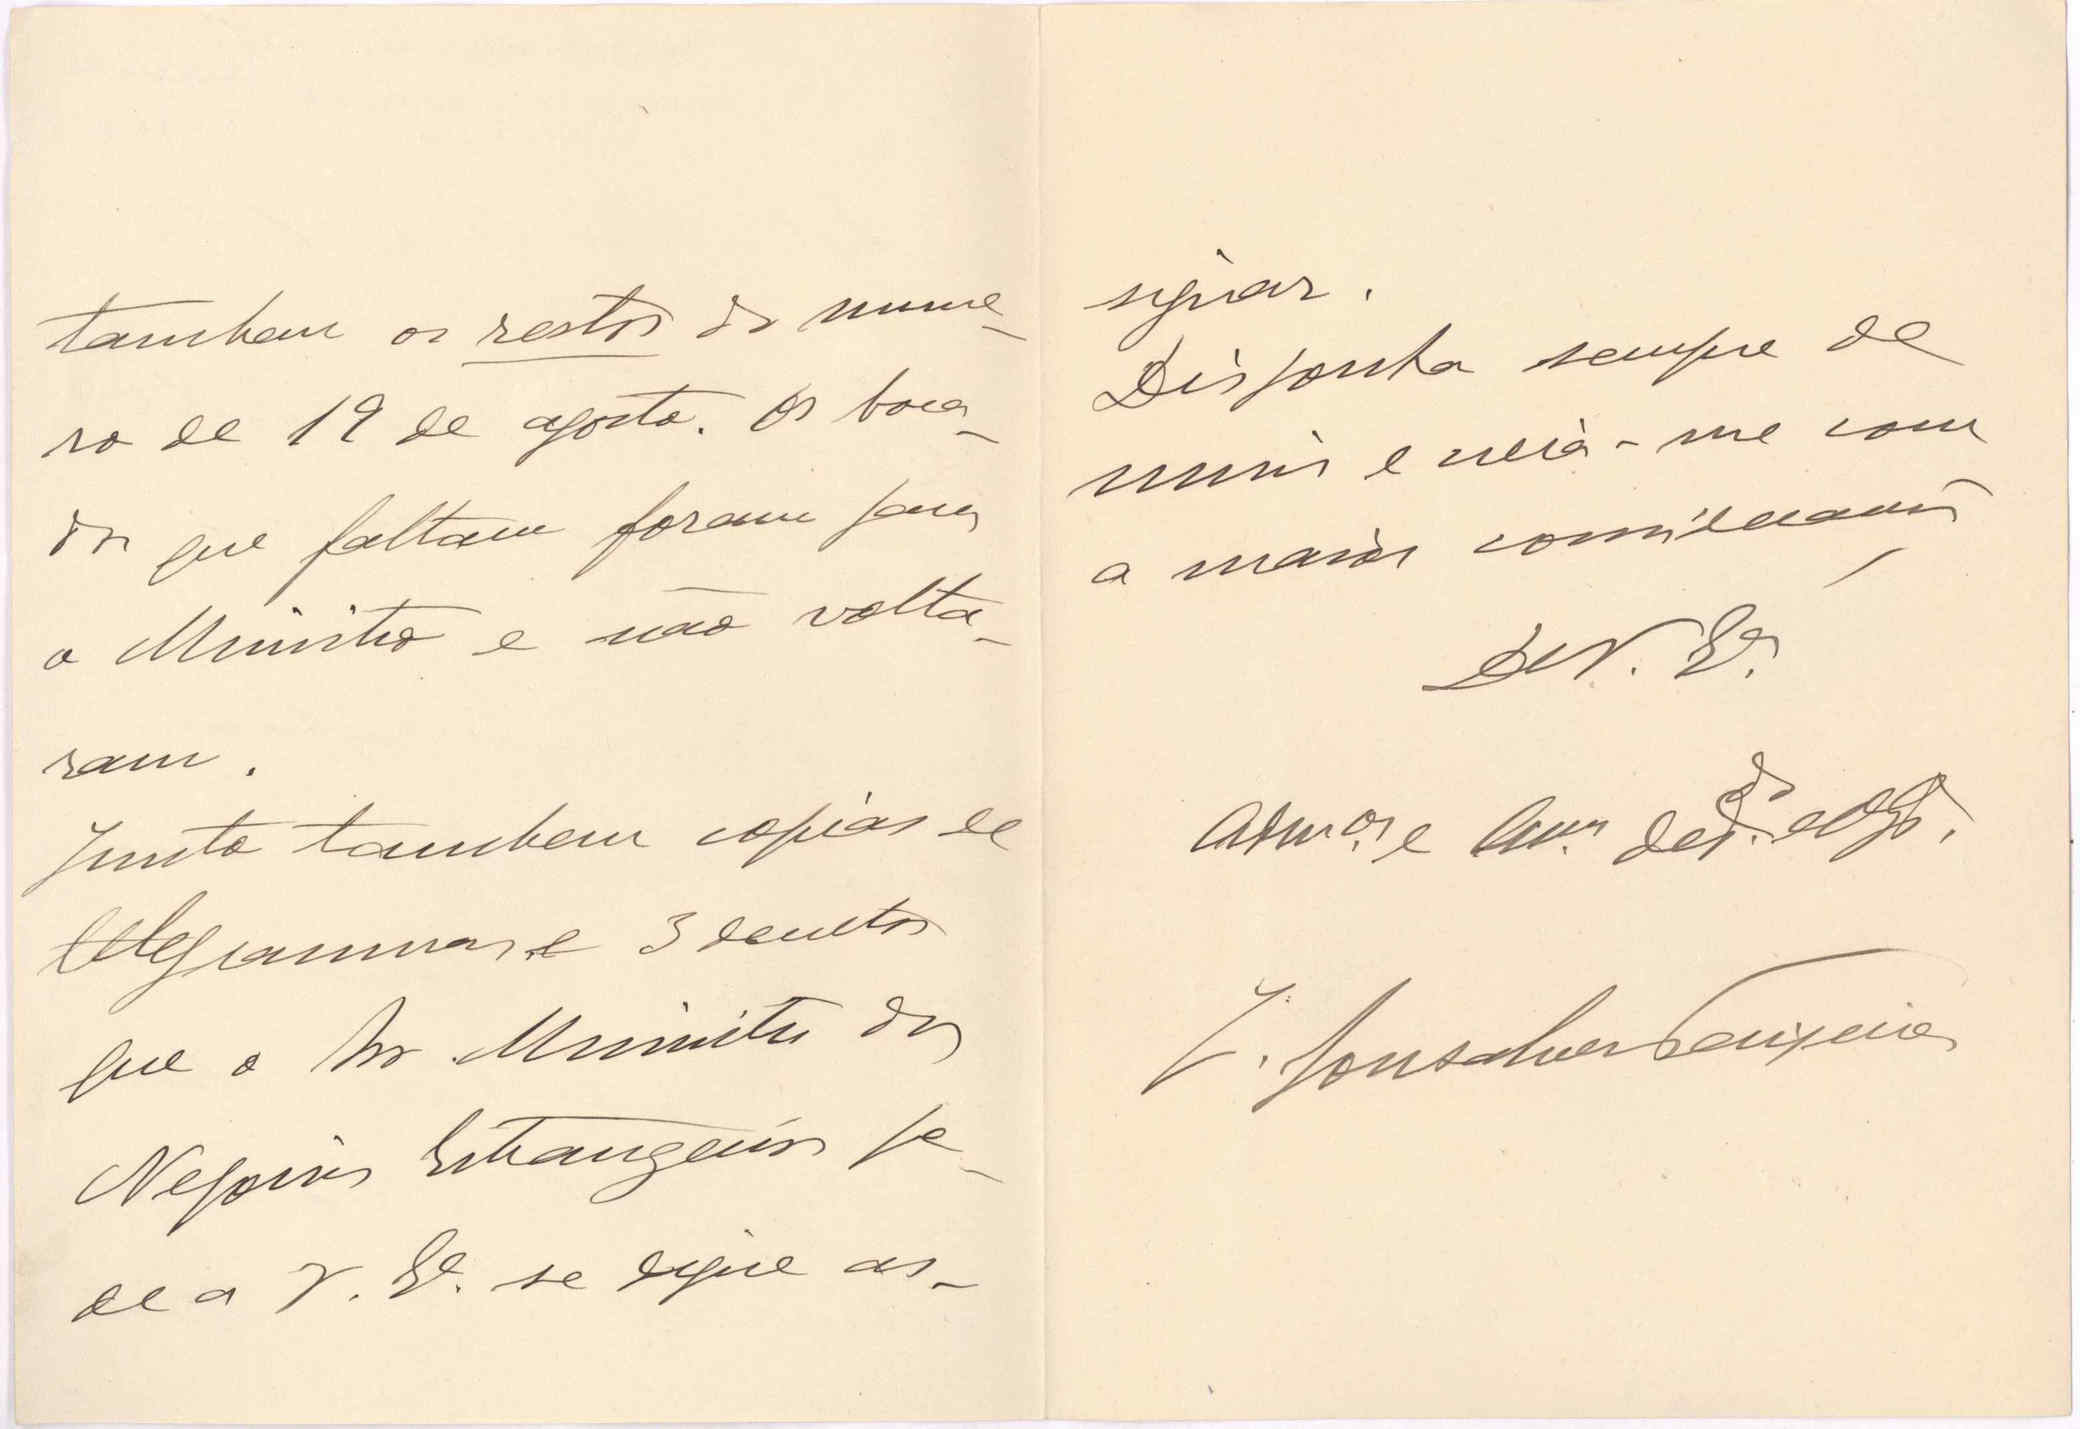 tambem os restos do nume-
ro de 19 de agosto. Os boca-
dos que faltam foram para
o Ministro e não volta-
ram.
Junto tambem copias de
telegrammas e 3 decretos
que o Sr Ministro dos
Negocios Estrangeiros pe-
de a V. Ex. se digne as-
signar.
Disponha sempre de
mim e creia-me com
a maior consideração
De V. Ex.
Admor. e Am.
J. Gonsalves Teixeira